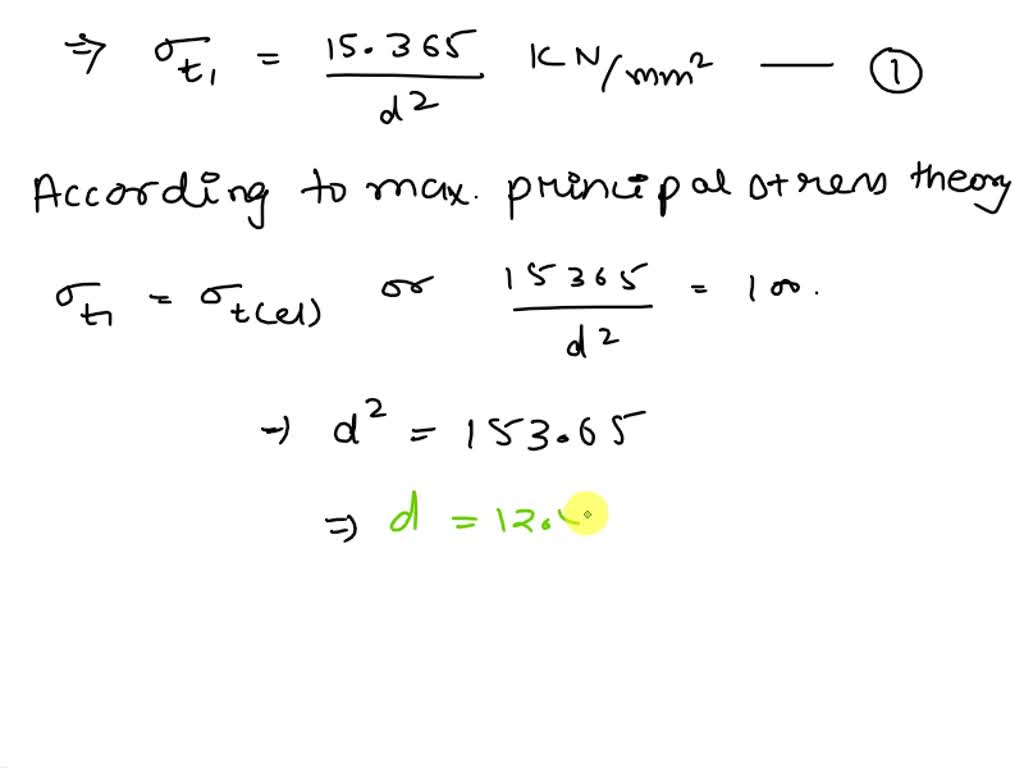 ⇒ σt1 = 15.365/d² KN/mm² — ①
According to max. principal stress theory
σt1 = σt(el) or 15365/d² = 100.
→ d² = 153.65
⇒ d = 12.